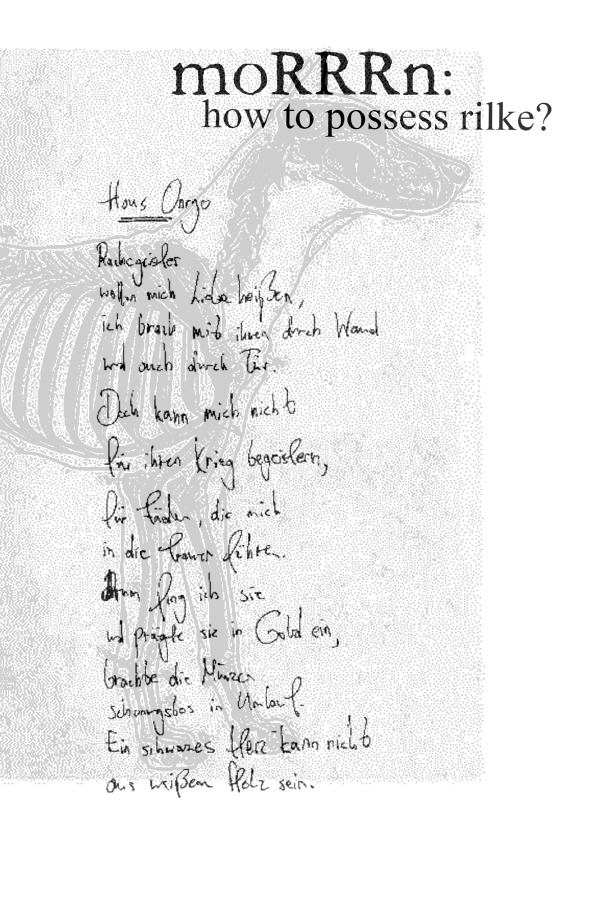 moRRRn:
how to possess rilke?
Haus Onrgo
Rachegeister
wollen mich Liebe heißen,
ich brach mit ihnen durch Wand
und auch durch Tür.
Doch kann mich nicht
für ihren Krieg begeistern,
für Fäden, die mich
in die führen.
fing ich sie
und prägte sie in Gold ein,
brachte die Münzen
schonungslos in Umlauf.
Ein schwarzes Herz kann nicht
aus weißem Holz sein.